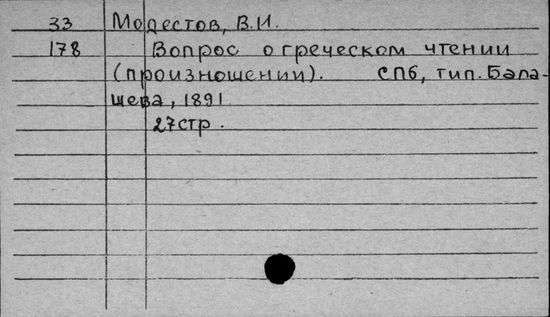 33 Модестов, В.И.
178 Вопрос о греческом чтении
(произношении). СПб, тип. Бала-
шева, 1891
27стр.